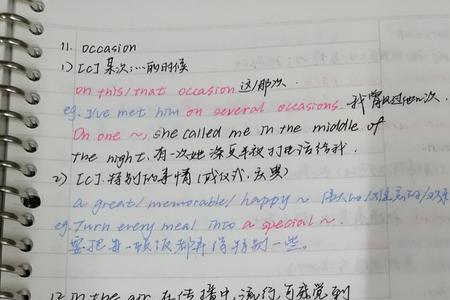 11. occasion
1) [c] 某次;…的时候
on this/that occasion 这/那次.
eg. I've met him on several occasions. 我曾见过他几次.
On one ~, she called me in the middle of
the night. 有一次她深更半夜打电话给我.
2) [c]. 特别的事情(或仪式,庆典)
a great/memorable/happy ~
eg. Turn every meal into a special ~.
要把每一顿饭都弄得特别一些。
12. in the air 在传播中,流行,可感觉到